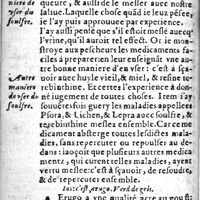 niere de queure, & aussi de le mesler auec nostre
vser du salive. Laquelle chose quãd ie leus pésee,
soulfre. ie l'ay puis approuuee par experience.
I'ay aussi pensé que s'il estoit meslé auecq̃
l'vrine, qu'il auroit tel effect. Or ie mons-
troye aux pescheurs les medicaments fa-
ciles à preparer: en leur enseignãt vne au-
tre bonne maniere d'en vser: c'est à sça-
Autre uoir auec huyle vieil, & miel, & resine te-
maniere rebinthine. Et certes l'experience à don-
de vser du né iugement de toutes choses. Item i'ay
soulfre. souuétesfois guery les maladies appellees
Psora, & Lichen, & Lepra auec soulfre, &
terebinthine meslez ensemble. Car ce me
dicament absterge toutes lesdictes mala-
dies, sans repercuter ou repousser au de-
dans: iaçoit que plusieurs autres medica
mentz, qui curent telles maladies, ayent
vertu meslee: c'est à sçauoir, de resoudre,
& de repercuter ensemble.
Ios: c'est, Ærugo. Verd de gris.
Erugo a vne qualité acre au goust: